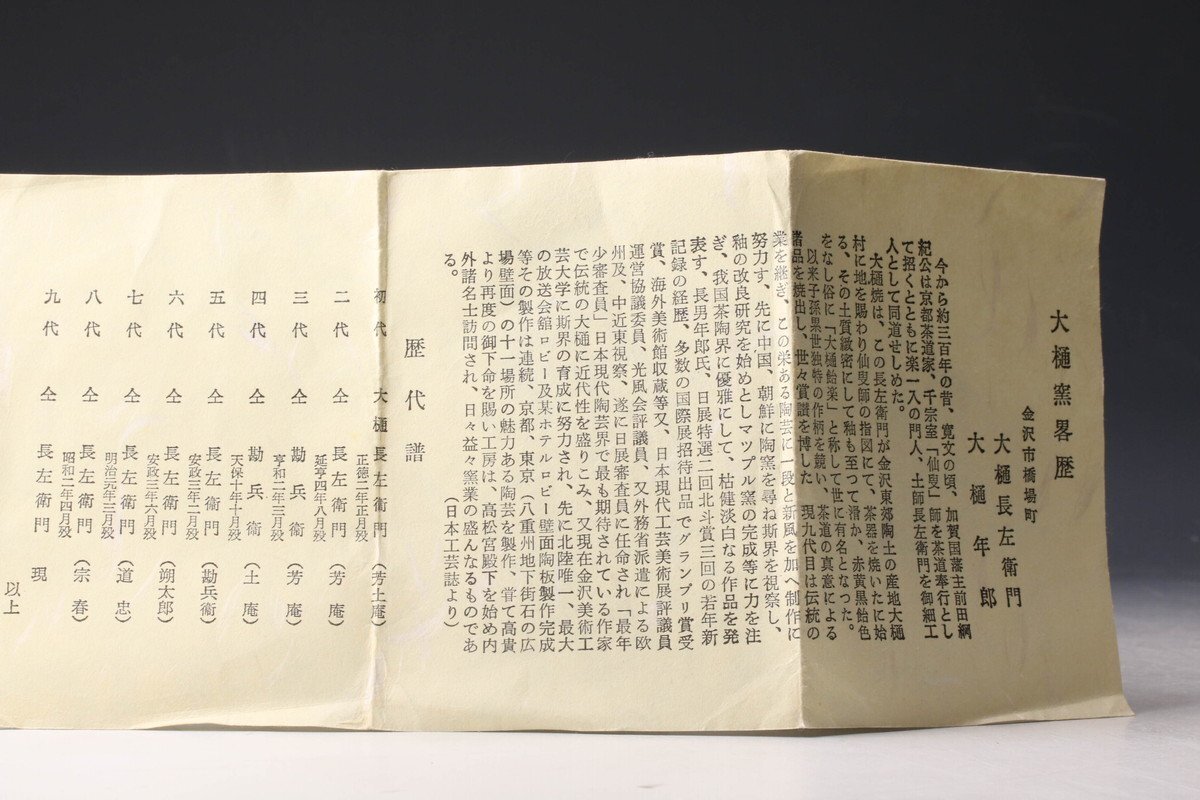 大樋窯畧歴
金沢市橋場町
大樋長左衛門
大樋年郎
今から約三百年の昔、寛文の頃、加賀国藩主前田綱
紀公は京都茶道家、千宗室「仙叟」師を茶道奉行とし
て招くとともに楽一入の門人、土師長左衛門を御細工
人として同道せしめた。
大樋焼は、この長左衛門が金沢東郊陶土の産地大樋
村に地を賜わり仙叟師の指図にて、茶器を焼いたに始
る、その土質緻密にして釉も至つて滑か、赤黄黒飴色
をなし俗に「大樋飴楽」と称して世に有名となつた。
以来子孫累世独特の作柄を競い、茶道の真意による
諸品を焼出し、世々賞讃を博した 現九代目は伝統の
業を継ぎ、この栄ある陶芸に一段と新風を加へ制作に
努力す、先に中国、朝鮮に陶窯を尋ね斯界を視察し、
釉の改良研究を始めとしマツプル窯の完成等に力を注
ぎ、我国茶陶界に優雅にして、枯健淡白なる作品を発
表す、長男年郎氏、日展特選二回北斗賞三回の若年新
記録の経歴、多数の国際展招待出品でグランプリ賞受
賞、海外美術館収蔵等又、日本現代工芸美術展評議員
運営協議委員、光風会評議員、又外務省派遣による欧
州及、中近東視察、遂に日展審査員に任命され「最年
少審査員」日本現代陶芸界で最も期待されている作家
で伝統の大樋に近代性を盛りこみ、又現在金沢美術工
芸大学に斯界の育成に努力され、先に北陸唯一、最大
の放送会舘ロビー及某ホテルロビー壁面陶板製作完成
等その製作は連続、京都、東京（八重州地下街石の広
場壁面）の十一場所の魅力ある陶芸を製作、嘗て高貴
より再度の御下命を賜い工房は、高松宮殿下を始め内
外諸名士訪問され、日々益々窯業の盛んなるものであ
る。
（日本工芸誌より）
歴代譜
初代 大樋 長左衛門（芳土庵）
正徳二年正月歿
二代 仝 長左衛門（芳庵）
延亨四年八月歿
三代 仝 勘兵衛（芳庵）
亨和二年三月歿
四代 仝 勘兵衛（土庵）
天保十年十月歿
五代 仝 長左衛門（勘兵衛）
安政三年二月歿
六代 仝 長左衛門（朔太郎）
安政三年六月歿
七代 仝 長左衛門（道忠）
明治元年三月歿
八代 仝 長左衛門（宗春）
昭和二年四月歿
九代 仝 長左衛門 現
以上